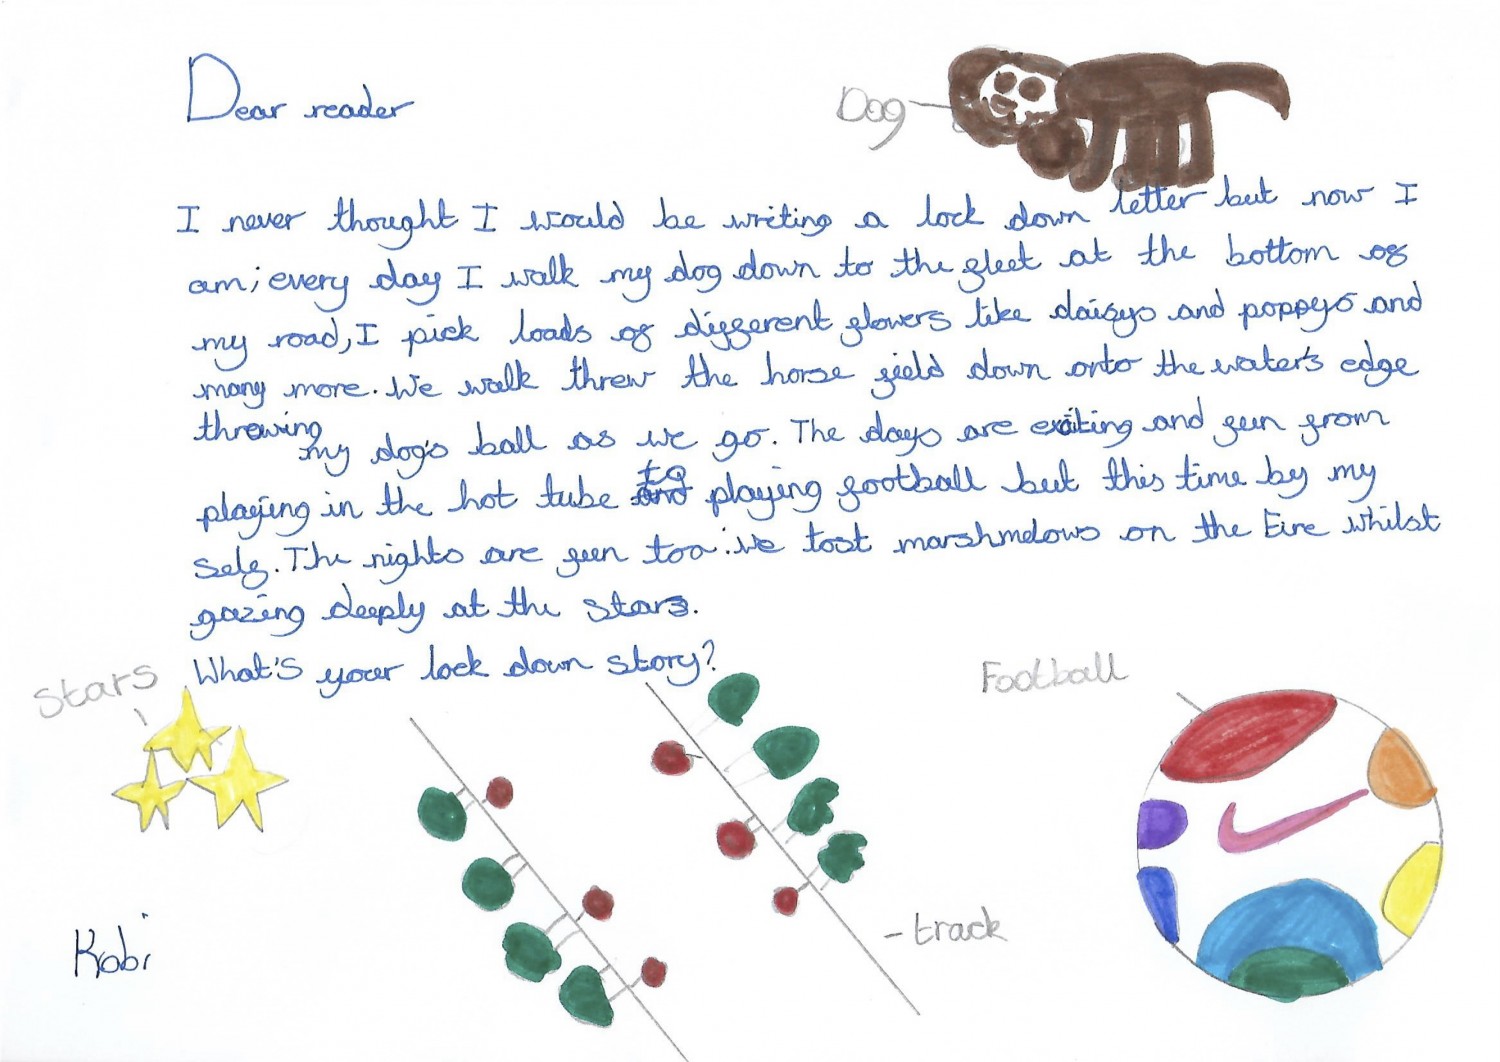 Dear reader
Dog
I never thought I would be writing a lock down letter but now I
am; every day I walk my dog down to the fleet at the bottom of
my road, I pick loads of different flowers like daisys and poppys and
many more. We walk threw the horse field down onto the water's edge
throwing my dog's ball as we go. The days are exiting and fun from
playing in the hot tube to playing football but this time by my
self. The nights are fun too. We tost marshmelows on the Fire whilst
gazing deeply at the stars.
What's your lock down story?
Stars
Football
track
Kobi